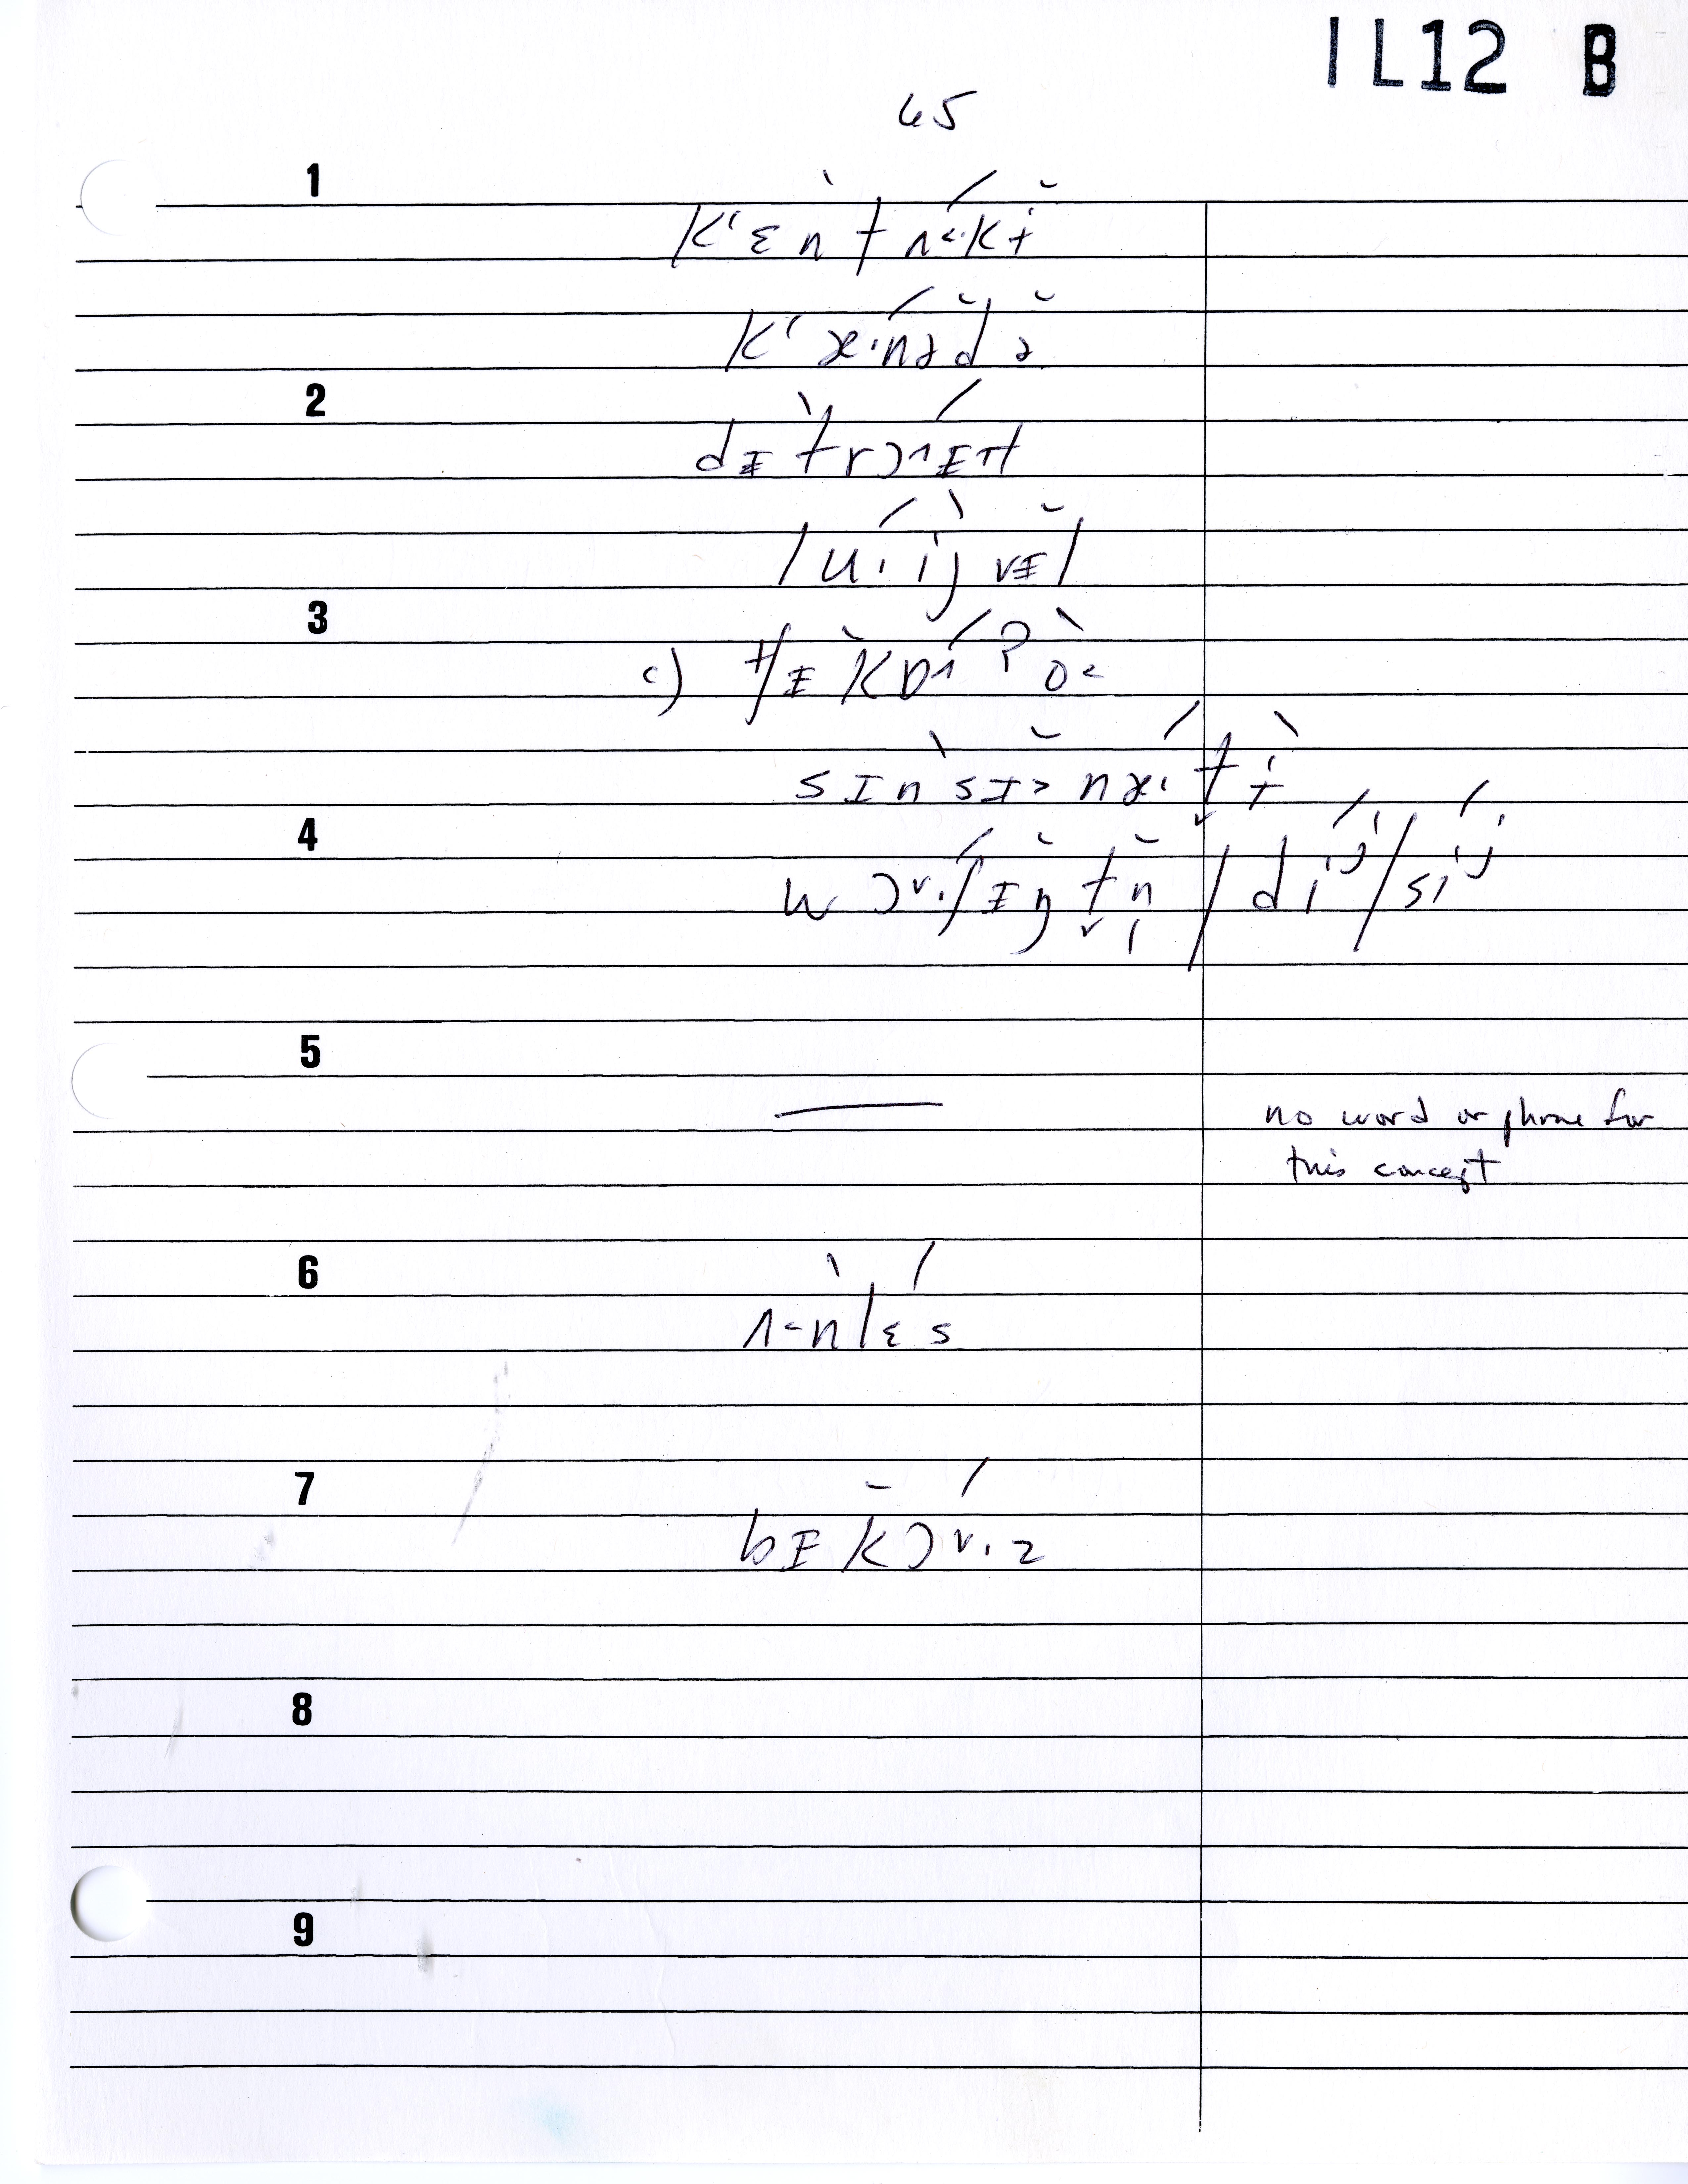 IL12 B
65
1
kʻɛ̀ntʌ́˂·kɨ̆
kʻǽ·nə̆də̆
2
dɪ̀trɔ́˄ɪt
lú·ìjvɪ̆l
3
c) tʃɪ̀kɒ́˄ʔò˂
sɪ̀nsɪ̆˃nǽ̨·t̬ɨ̀
4
wɔ́r·ʃɪ̆ŋt̬n̩̆ / díʲ / síʲ
5
no word or phrase for
this concept
6
ʌ̀˂nlɛ́s
7
bɪ̆kɔ́r·z
8
9